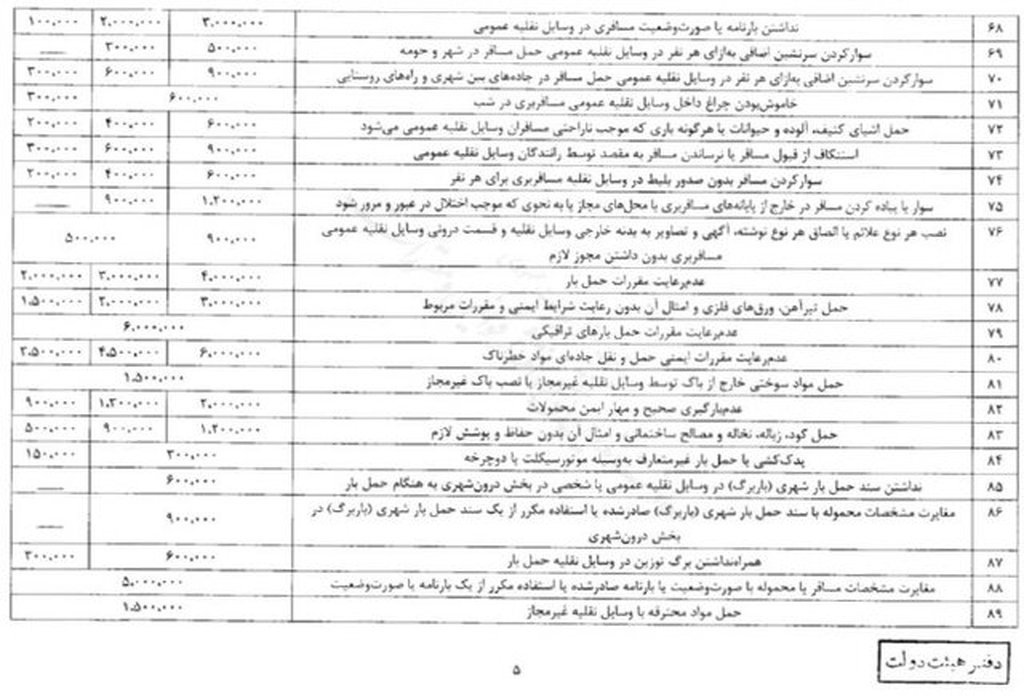 ۶۸ نداشتن بارنامه یا صورت‌وضعیت مسافری در وسایل نقلیه عمومی ۳،۰۰۰،۰۰۰ ۲،۰۰۰،۰۰۰ ۱۰۰،۰۰۰
۶۹ سوارکردن سرنشین اضافی به‌ازای هر نفر در وسایل نقلیه عمومی حمل مسافر در شهر و حومه ۵۰۰،۰۰۰ ۳۰۰،۰۰۰ ــــ
۷۰ سوارکردن سرنشین اضافی به‌ازای هر نفر در وسایل نقلیه عمومی حمل مسافر در جاده‌های بین شهری و راه‌های روستایی ۹۰۰،۰۰۰ ۶۰۰،۰۰۰ ۳۰۰،۰۰۰
۷۱ خاموش‌بودن چراغ داخل وسایل نقلیه عمومی مسافربری در شب ۶۰۰،۰۰۰ ۳۰۰،۰۰۰
۷۲ حمل اشیای کثیف، آلوده و حیوانات یا هرگونه باری که موجب ناراحتی مسافران وسایل نقلیه عمومی می‌شود ۶۰۰،۰۰۰ ۴۰۰،۰۰۰ ۲۰۰،۰۰۰
۷۳ استنکاف از قبول مسافر یا نرساندن مسافر به مقصد توسط رانندگان وسایل نقلیه عمومی ۹۰۰،۰۰۰ ۶۰۰،۰۰۰ ۳۰۰،۰۰۰
۷۴ سوارکردن مسافر بدون صدور بلیط در وسایل نقلیه مسافربری برای هر نفر ۶۰۰،۰۰۰ ۴۰۰،۰۰۰ ۲۰۰،۰۰۰
۷۵ سوار یا پیاده کردن مسافر در خارج از پایانه‌های مسافربری یا محل‌های مجاز یا به نحوی که موجب اختلال در عبور و مرور شود ۱،۲۰۰،۰۰۰ ۹۰۰،۰۰۰ ــــ
۷۶ نصب هر نوع علائم یا الصاق هر نوع نوشته، آگهی و تصاویر به بدنه خارجی وسایل نقلیه و قسمت درونی وسایل نقلیه عمومی ۹۰۰،۰۰۰ ۵۰۰،۰۰۰
مسافربری بدون داشتن مجوز لازم
۷۷ عدم‌رعایت مقررات حمل بار ۴،۰۰۰،۰۰۰ ۳،۰۰۰،۰۰۰ ۲،۰۰۰،۰۰۰
۷۸ حمل تیرآهن، ورق‌های فلزی و امثال آن بدون رعایت شرایط ایمنی و مقررات مربوط ۳،۰۰۰،۰۰۰ ۲،۰۰۰،۰۰۰ ۱،۵۰۰،۰۰۰
۷۹ عدم‌رعایت مقررات حمل بارهای ترافیکی ۶،۰۰۰،۰۰۰
۸۰ عدم‌رعایت مقررات ایمنی حمل و نقل جاده‌ای مواد خطرناک ۶،۰۰۰،۰۰۰ ۴،۵۰۰،۰۰۰ ۳،۵۰۰،۰۰۰
۸۱ حمل مواد سوختی خارج از باک توسط وسایل نقلیه غیرمجاز یا نصب باک غیرمجاز ۱،۵۰۰،۰۰۰
۸۲ عدم‌بارگیری صحیح و مهار ایمن محمولات ۲،۰۰۰،۰۰۰ ۱،۳۰۰،۰۰۰ ۹۰۰،۰۰۰
۸۳ حمل کود، زباله، نخاله و مصالح ساختمانی و امثال آن بدون حفاظ و پوشش لازم ۱،۲۰۰،۰۰۰ ۹۰۰،۰۰۰ ۵۰۰،۰۰۰
۸۴ یدک‌کشی یا حمل بار غیرمتعارف به‌وسیله موتورسیکلت یا دوچرخه ۳۰۰،۰۰۰ ۱۵۰،۰۰۰
۸۵ نداشتن سند حمل بار شهری (باربرگ) در وسایل نقلیه عمومی یا شخصی در بخش درون‌شهری به هنگام حمل بار ۶۰۰،۰۰۰ ــــ
۸۶ مغایرت مشخصات محموله با سند حمل بار شهری (باربرگ) صادرشده یا استفاده مکرر از یک سند حمل بار شهری (باربرگ) در ۹۰۰،۰۰۰ ــــ
بخش درون‌شهری
۸۷ همراه‌نداشتن برگ توزین در وسایل نقلیه حمل بار ۶۰۰،۰۰۰ ۳۰۰،۰۰۰
۸۸ مغایرت مشخصات مسافر یا محموله با صورت‌وضعیت یا بارنامه صادرشده یا استفاده مکرر از یک بارنامه یا صورت‌وضعیت ۵،۰۰۰،۰۰۰
۸۹ حمل مواد محترقه با وسایل نقلیه غیرمجاز ۱،۵۰۰،۰۰۰
دفتر هیئت دولت
۵